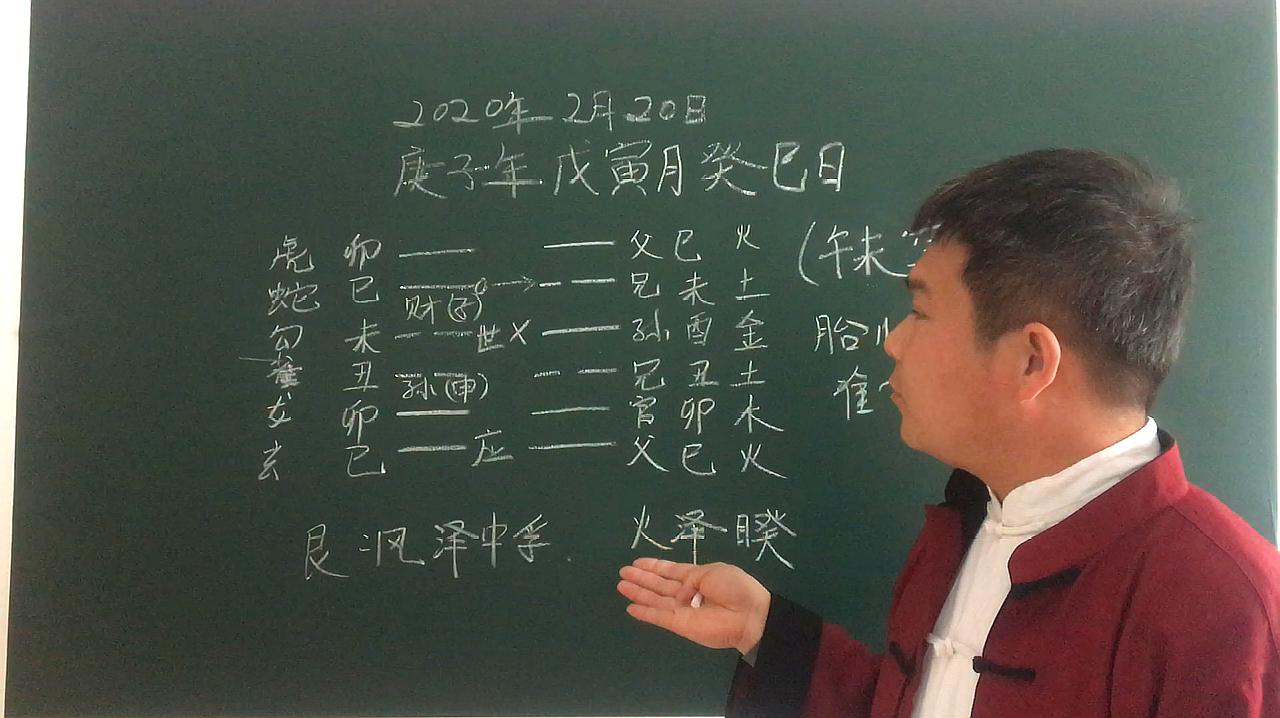 2020年 2月20日
庚子年 戊寅月 癸巳日
虎 卯 父 巳 火 (午未空
蛇 巳 财(子) 兄 未 土
勾 未 世 X 孙 酉 金 胎
雀 丑 孙(申) 兄 丑 土 准
龙 卯 官 卯 木
玄 巳 应 父 巳 火
艮:风泽中孚. 火泽睽